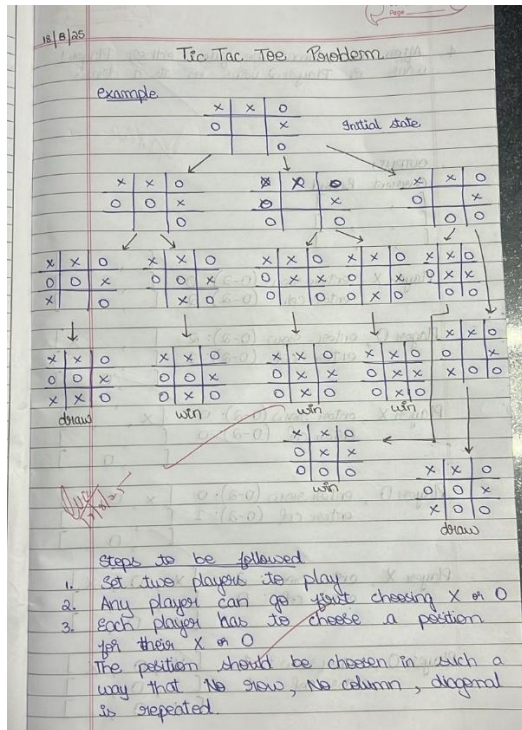 18/8/25
Tic Tac Toe Problem
example
X X O
O X Initial state
O
X X O X X O X X O
O O X O X O X
O O O O O
X X O X X O X X O X X O X X O
O O X O O X O X X O X O X X
X O X O O O O X O O O
X X O
O X
X O O
X X O X X O X X O X X O
O O X O O X O X X O X X
X X O O X O O X O O X O
draw win win win
X X O
O X X
O O O
win
X X O
O O X
X O O
draw
Steps to be followed
1. Set two players to play
2. Any player can go first choosing X or O
3. Each player has to choose a position
for their X or O
The position should be choosen in such a
way that No row, No column, diagonal
is repeated.